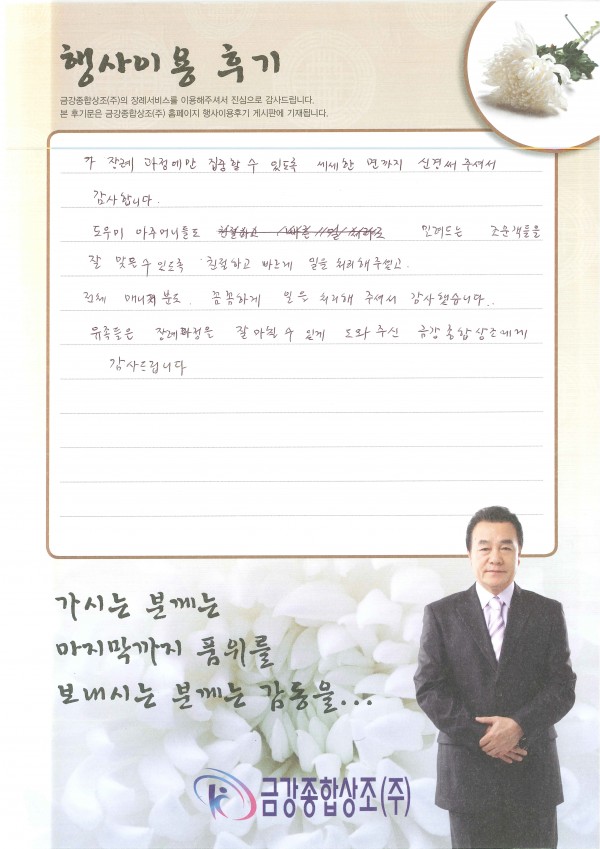 행사이용 후기
금강종합상조(주)의 장례서비스를 이용해주셔서 진심으로 감사드립니다.
본 후기문은 금강종합상조(주) 홈페이지 행사이용후기 게시판에 기재됩니다.
가 장례 과정에만 집중할 수 있도록 세세한 면까지 신경써 주셔서
감사합니다.
도우미 아주머니들도 친절하고 빠른 일 처리로 밀려드는 조문객들을
잘 맞을 수 있도록 친절하고 빠르게 일을 처리해 주셨고.
전체 매니저 분도. 꼼꼼하게 일을 처리해 주셔서 감사했습니다.
유족들은 장례과정을 잘 마칠 수 있게 도와 주신 금강종합상조에게
감사드립니다
가시는 분께는
마지막까지 품위를
보내시는 분께는 감동을...
금강종합상조(주)